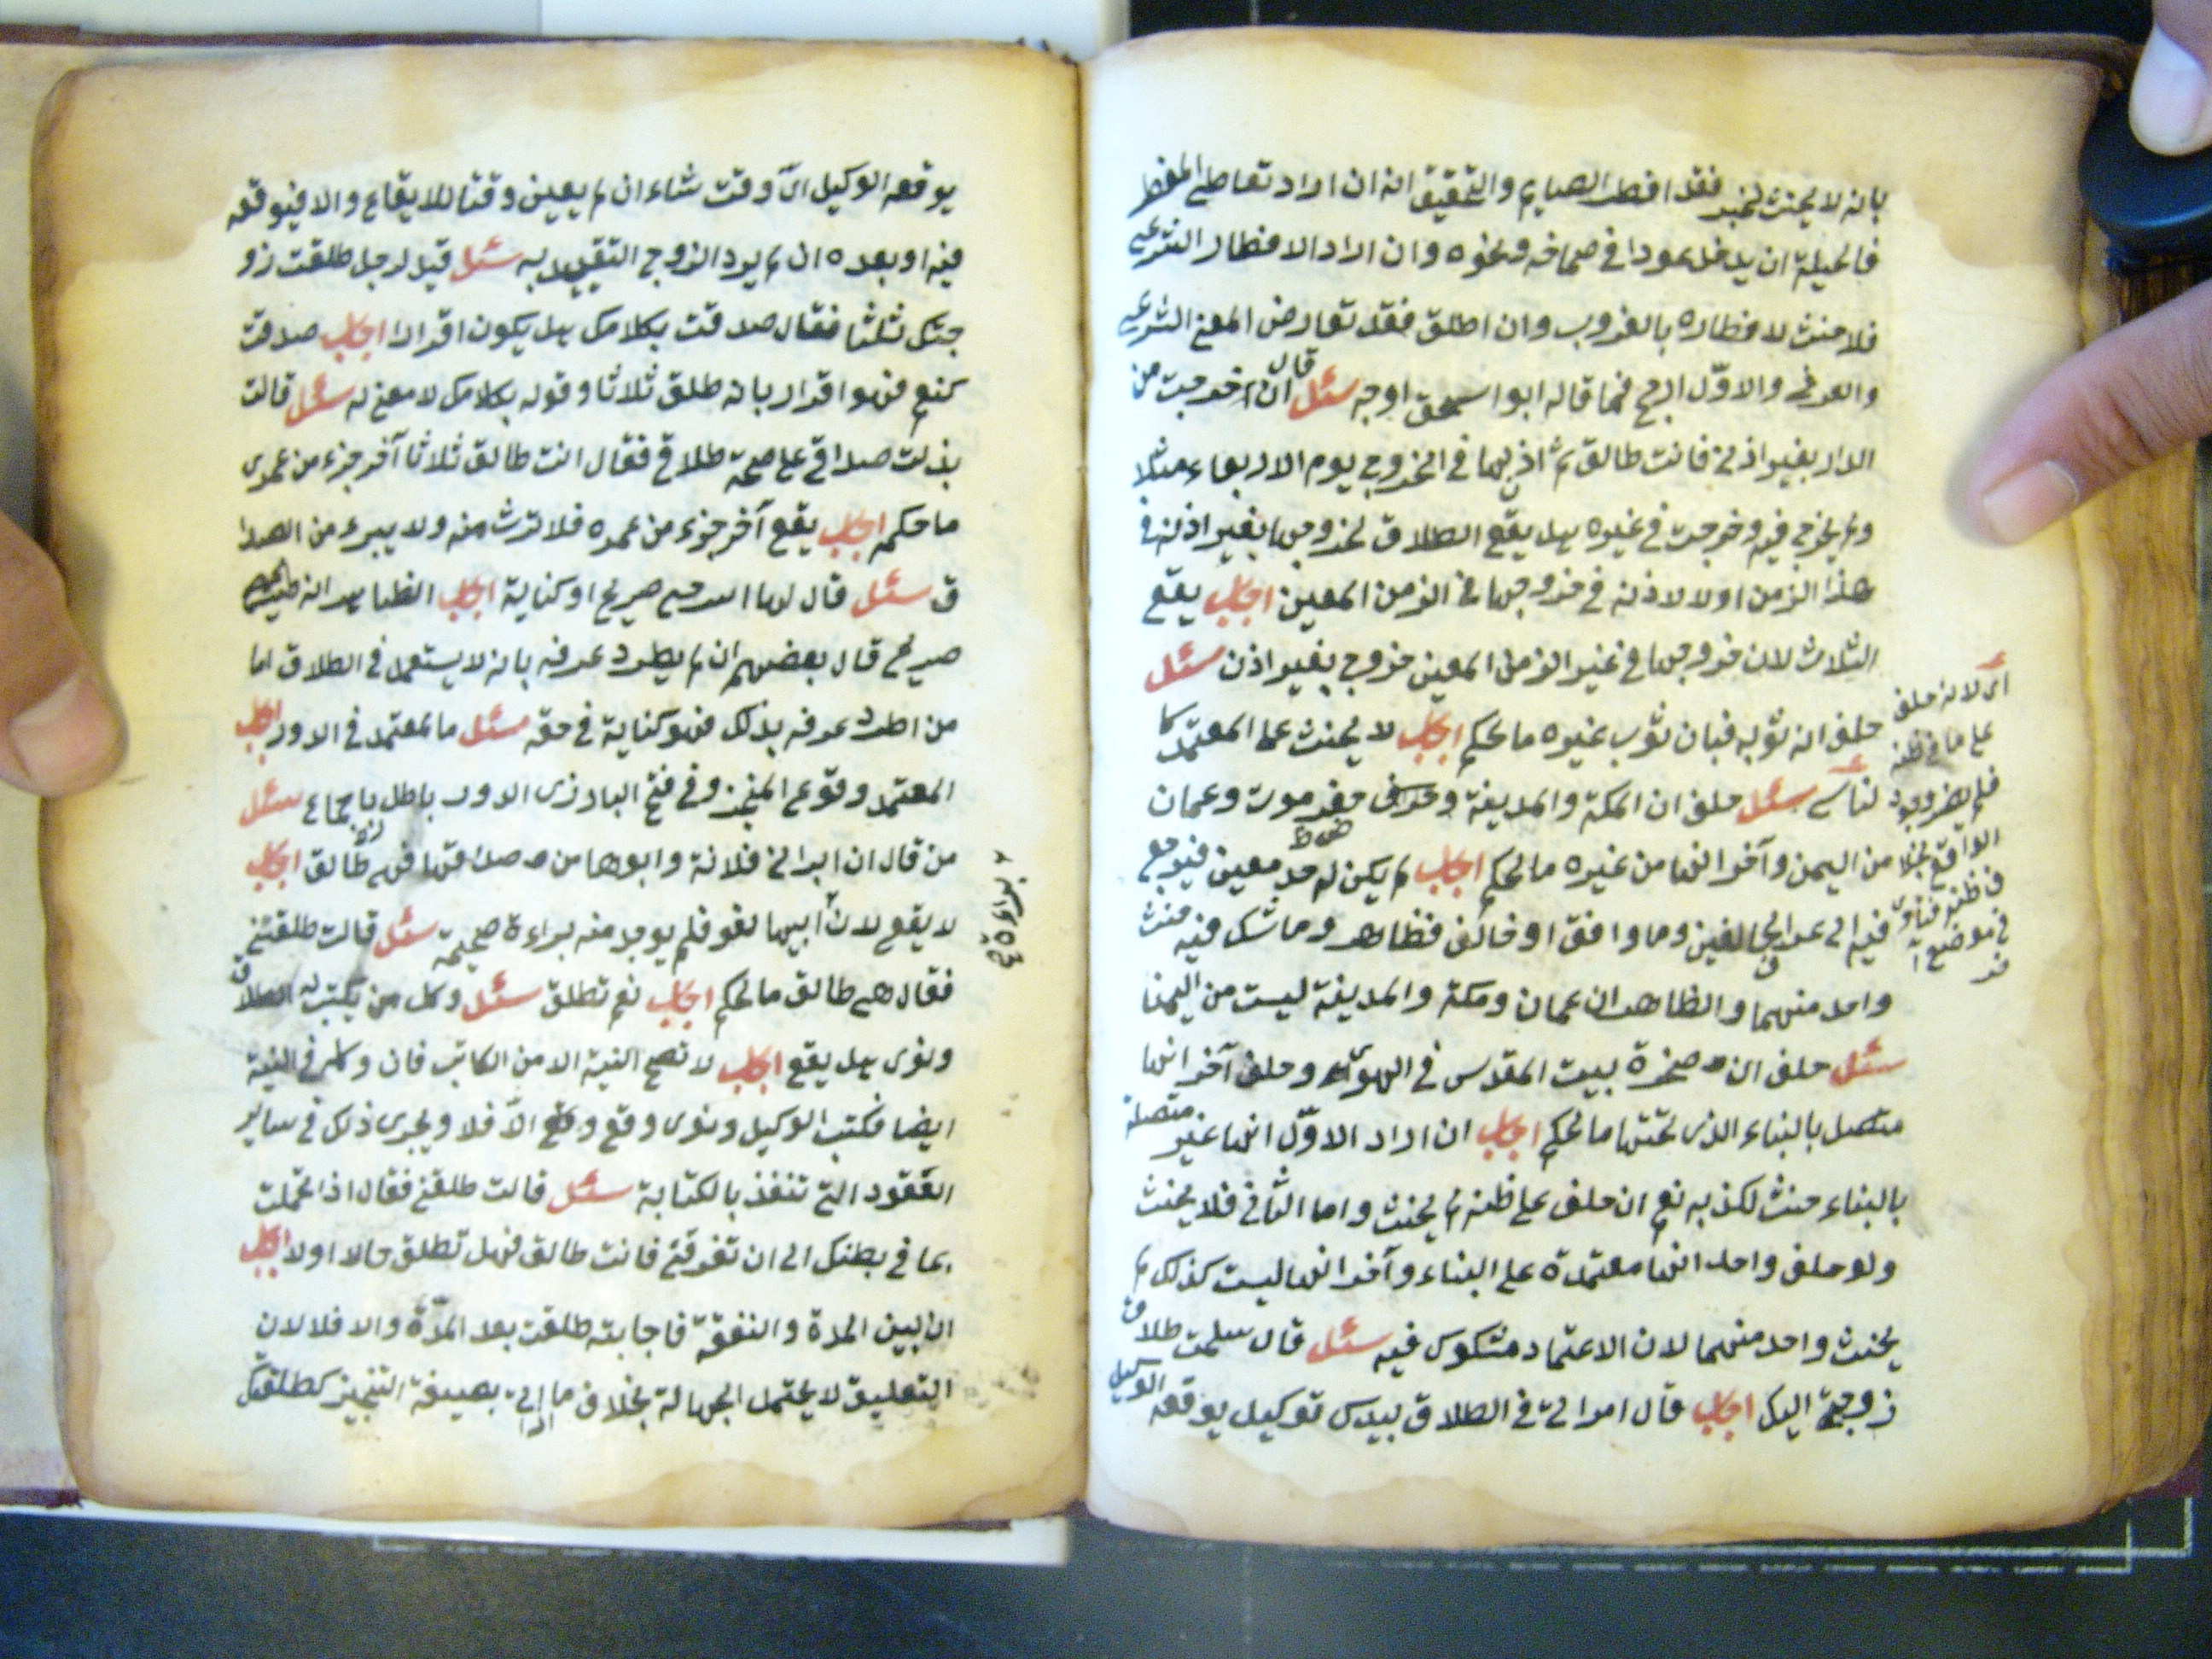 بانه لا يحنث لخبر فقد افطر الصايم والتحقيق انه ان اراد تعاطي المفطر
فالحيلة ان يدخل عودا في صماخه ونحوه وان اراد الافطار الشرعي
فلا حنث لافطاره بالغروب وان اطلق فقد تعارض المعنى الشرعي
والعرفي والاوّل ارجح فما قاله ابو اسحق اوجه سئل قال ان خرجت من
الدار بغير اذني فانت طالق ثم اذن لها في الخروج يوم الاربعاء مثلا
ولم يخرج فيه وخرجت في غيره هل يقع الطلاق لخروجها بغير اذنه في
هذا الزمن اولا لاذنه في خروجها في الزمن المعين اجاب يقع
الثلاث لان خروجها في غير الزمن المعين خروج بغير اذن سئل
حلف انه ثوبه فبان ثوب غيره ما الحكم اجاب لا يحنث على المعتمد كا
لناسي سئل حلف ان المكة والمدينة وحرض حضرموت وعمان
من اليمن وآخر انها من غيره ما الحكم اجاب لم يكن له حد معين فيرجع
فيه الى عد الحالفين وما وافق او خالف فظاهر وما شك فيه حنث
واحد منهما والظاهر ان عمان ومكة والمدينة ليست من اليمن
سئل حلف ان صخرة بيت المقدس في الهواء وحلف آخر انها
متصل بالبناء الذى تحتها ما الحكم اجاب ان اراد الاوّل انها غير متصلة
بالبناء حنث لكذبه نعم ان حلف على ظنه لم يحنث واما الثاني فلا يحنث
ولو حلف واحد انها معتمدة على البناء وآخر انها ليست كذلك لم
يحنث واحد منهما لان الاعتماد مشكوك فيه سئل قال سلمت طلاق
زوجتي اليك اجاب قال امرالي في الطلاق بيدك توكيل يوقعه الوكيل
اى لانه حلف
على ما في ظنه
فلم يضر وجود
الواقع بخلا
ف ظنه
في موضع آ
خر
يوقعه الوكيل اىّ وقت شاء ان لم يعين وقتا للايقاع والا فيوقعه
فيه او بعده ان لم يرد الزوج التقييد به سئل قيل لرجل طلقت زو
جتك ثلثا فقال صدقت بكلامك هل يكون اقرارا اجاب صدقت
كنعم فهو اقرار بانه طلق ثلاثا وقوله بكلامك لا معنى له سئل قالت
بذلت صداقي على صحة طلاقي فقال انت طالق ثلاثا آخر جزء من عمرى
ما حكمه اجاب يقع آخر جزء من عمره فلا ترث منه ولا يبرء من الصدا
ق سئل قال لها اسرحي صريح او كناية اجاب الظاهر انه
صريح قال بعضهم ان لم يطرد عرفه بانه لا يستعمل في الطلاق اما
من اطرد عرفه بذلك فهو كناية في حقه سئل ما المعتمد في الدور اجاب
المعتمد وقوع المنجز وفي فتح البارزى الدور باطل باجماع سئل
من قال ان ابراتني فلانة وابوها من صداقها فهي طالق اجاب
لا يقع لان ابيها لغو فلم يوجد منه براءة صحيحة سئل قالت طلقتني
فقال هي طالق ما الحكم اجاب نعم تطلق سئل وكل من يكتب له الطلاق
ونوى هل يقع اجاب لا تصح النية الا من الكاتب فان وكله في النية
ايضا فكتب الوكيل ونوى وقع والّا فلا ويجرى ذلك في ساير
العقود التي تنفذ بالكتابة سئل قالت طلقني فقال اذا تحملت
بما في بطنك الى ان تفرقني فانت طالق فهل تطلق حالا اولا اجاب
ان بين المدة والنفقة فاجابته طلقت بعد المدّة والا فلا لان
التعليق لا يحتمل الجهالة بخلاف ما اذا اتى بصيغة التنجيز كطلقتك
براءة